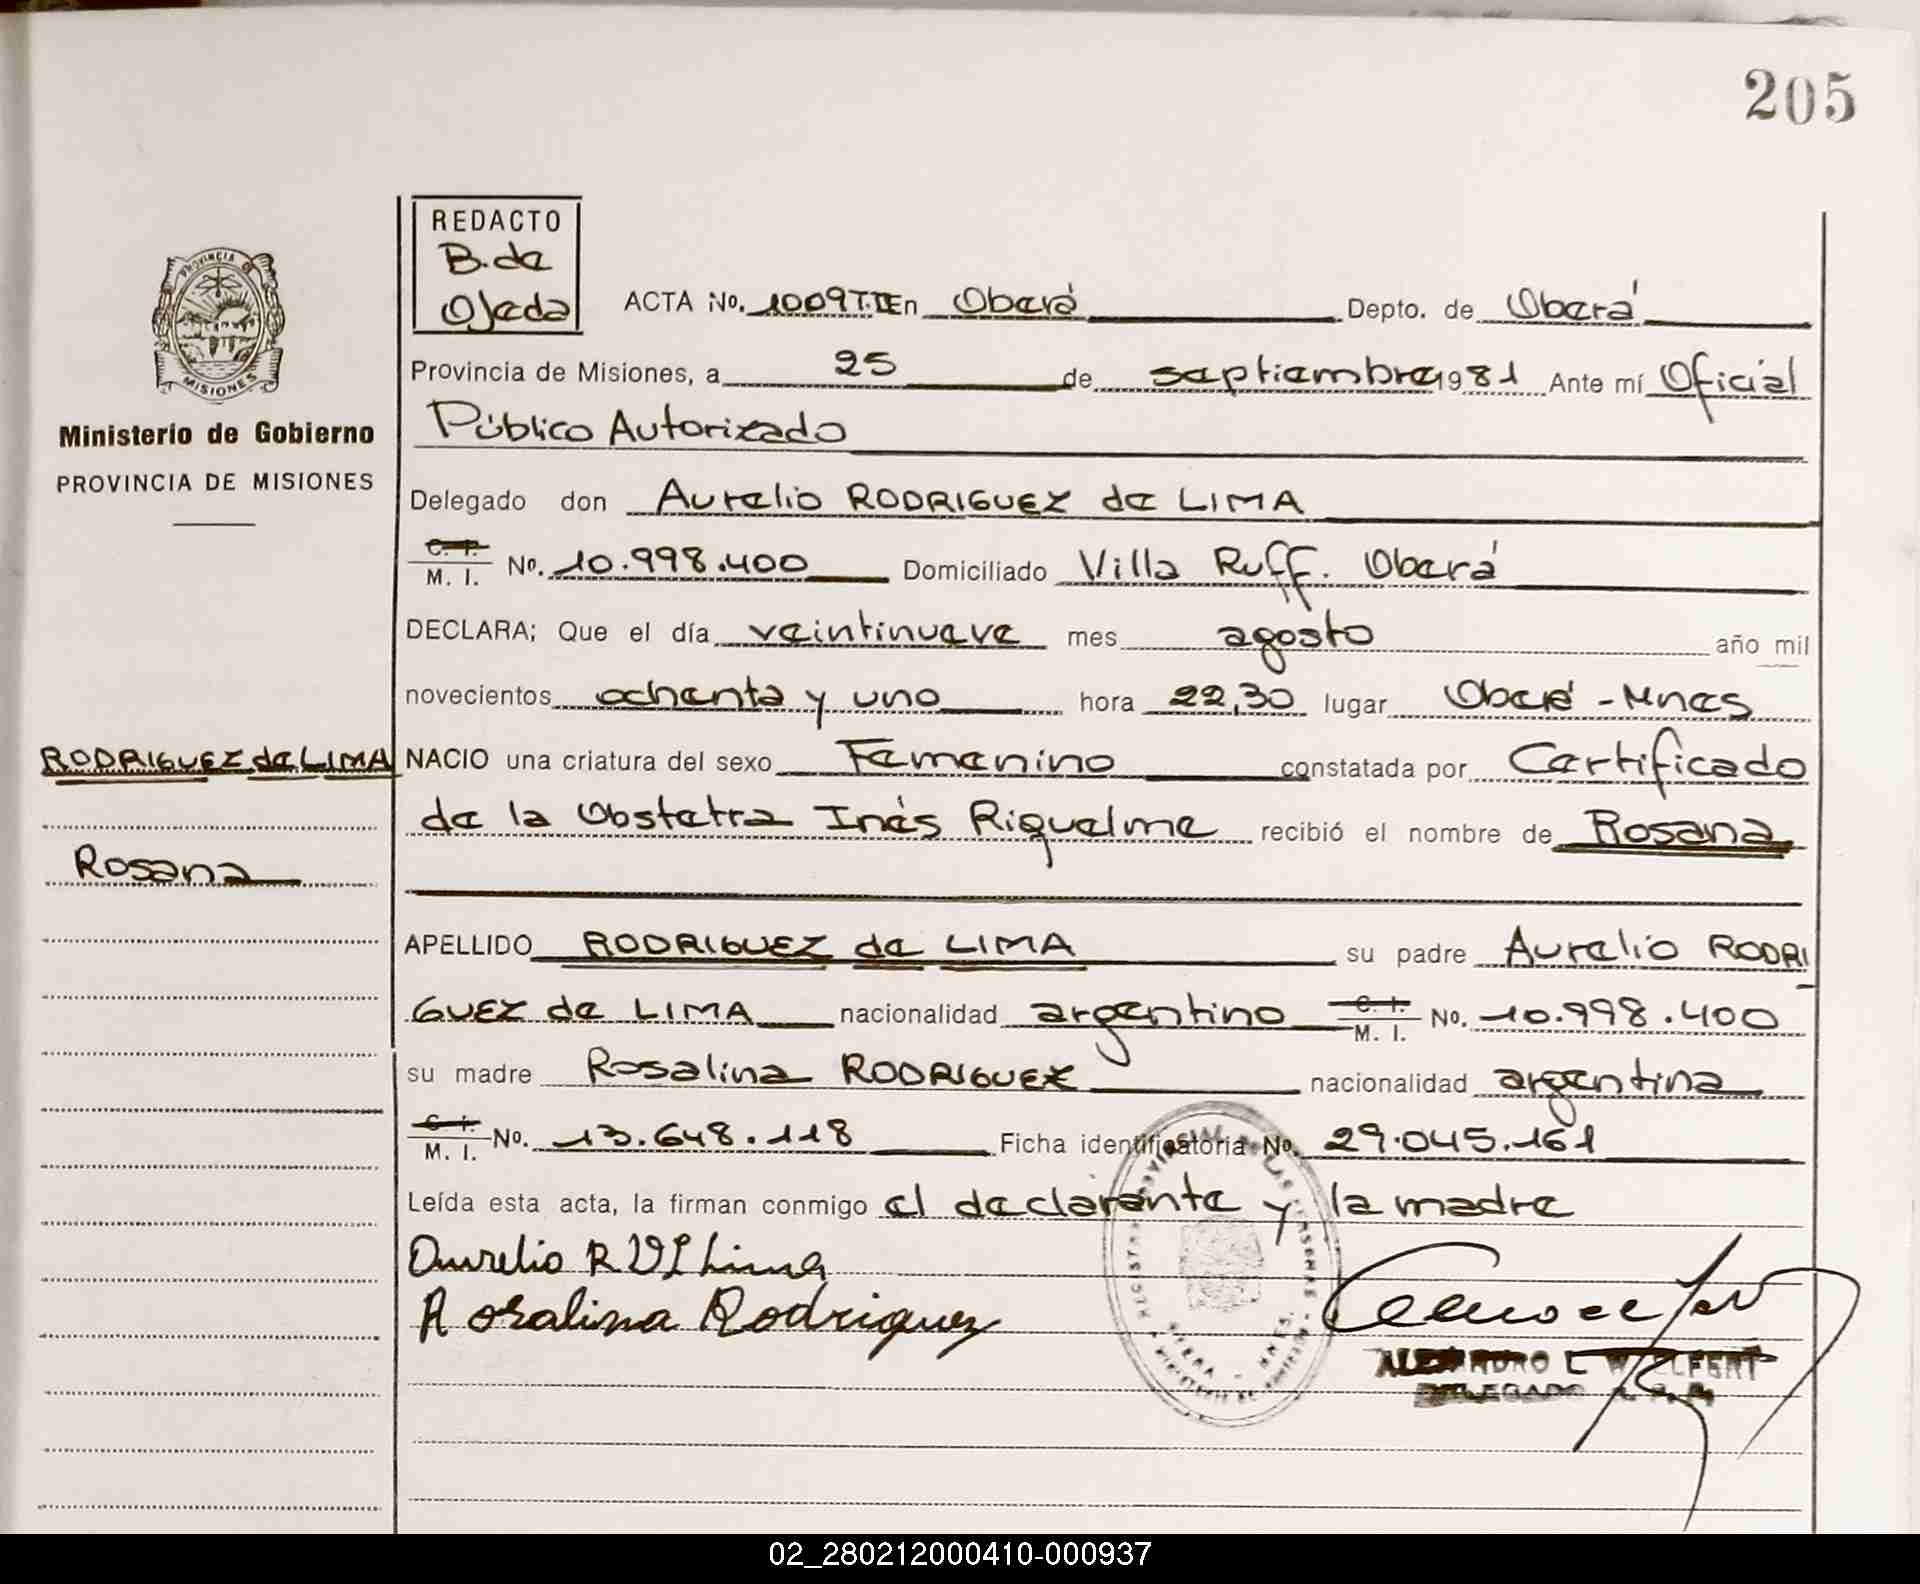 205
REDACTO
B. de
Ojeda
PROVINCIA
MISIONES
Ministerio de Gobierno
PROVINCIA DE MISIONES
ACTA No. 1009T.II En Oberá Depto. de Oberá
Provincia de Misiones, a 25 de septiembre 1981 Ante mí Oficial
Público Autorizado
Delegado don Aurelio RODRIGUEZ de LIMA
C. I. M. I. No. 10.998.400 Domiciliado Villa Ruff. Oberá
DECLARA; Que el día veintinueve mes agosto año mil
novecientos ochenta y uno hora 22,30 lugar Oberá - Mnes
RODRIGUEZ de LIMA
Rosana
NACIO una criatura del sexo Femenino constatada por Certificado
de la Obstetra Inés Riquelme recibió el nombre de Rosana
APELLIDO RODRIGUEZ de LIMA su padre Aurelio RODRI
GUEZ de LIMA nacionalidad argentino C. I. M. I. No. 10.998.400
su madre Rosalina RODRIGUEZ nacionalidad argentina
C. I. M. I. No. 13.648.118 Ficha identificatoria No. 29.045.161
Leída esta acta, la firman conmigo el declarante y la madre
Aurelio R D L Lima
Rosalina Rodriguez
DELEGADO
02_280212000410-000937